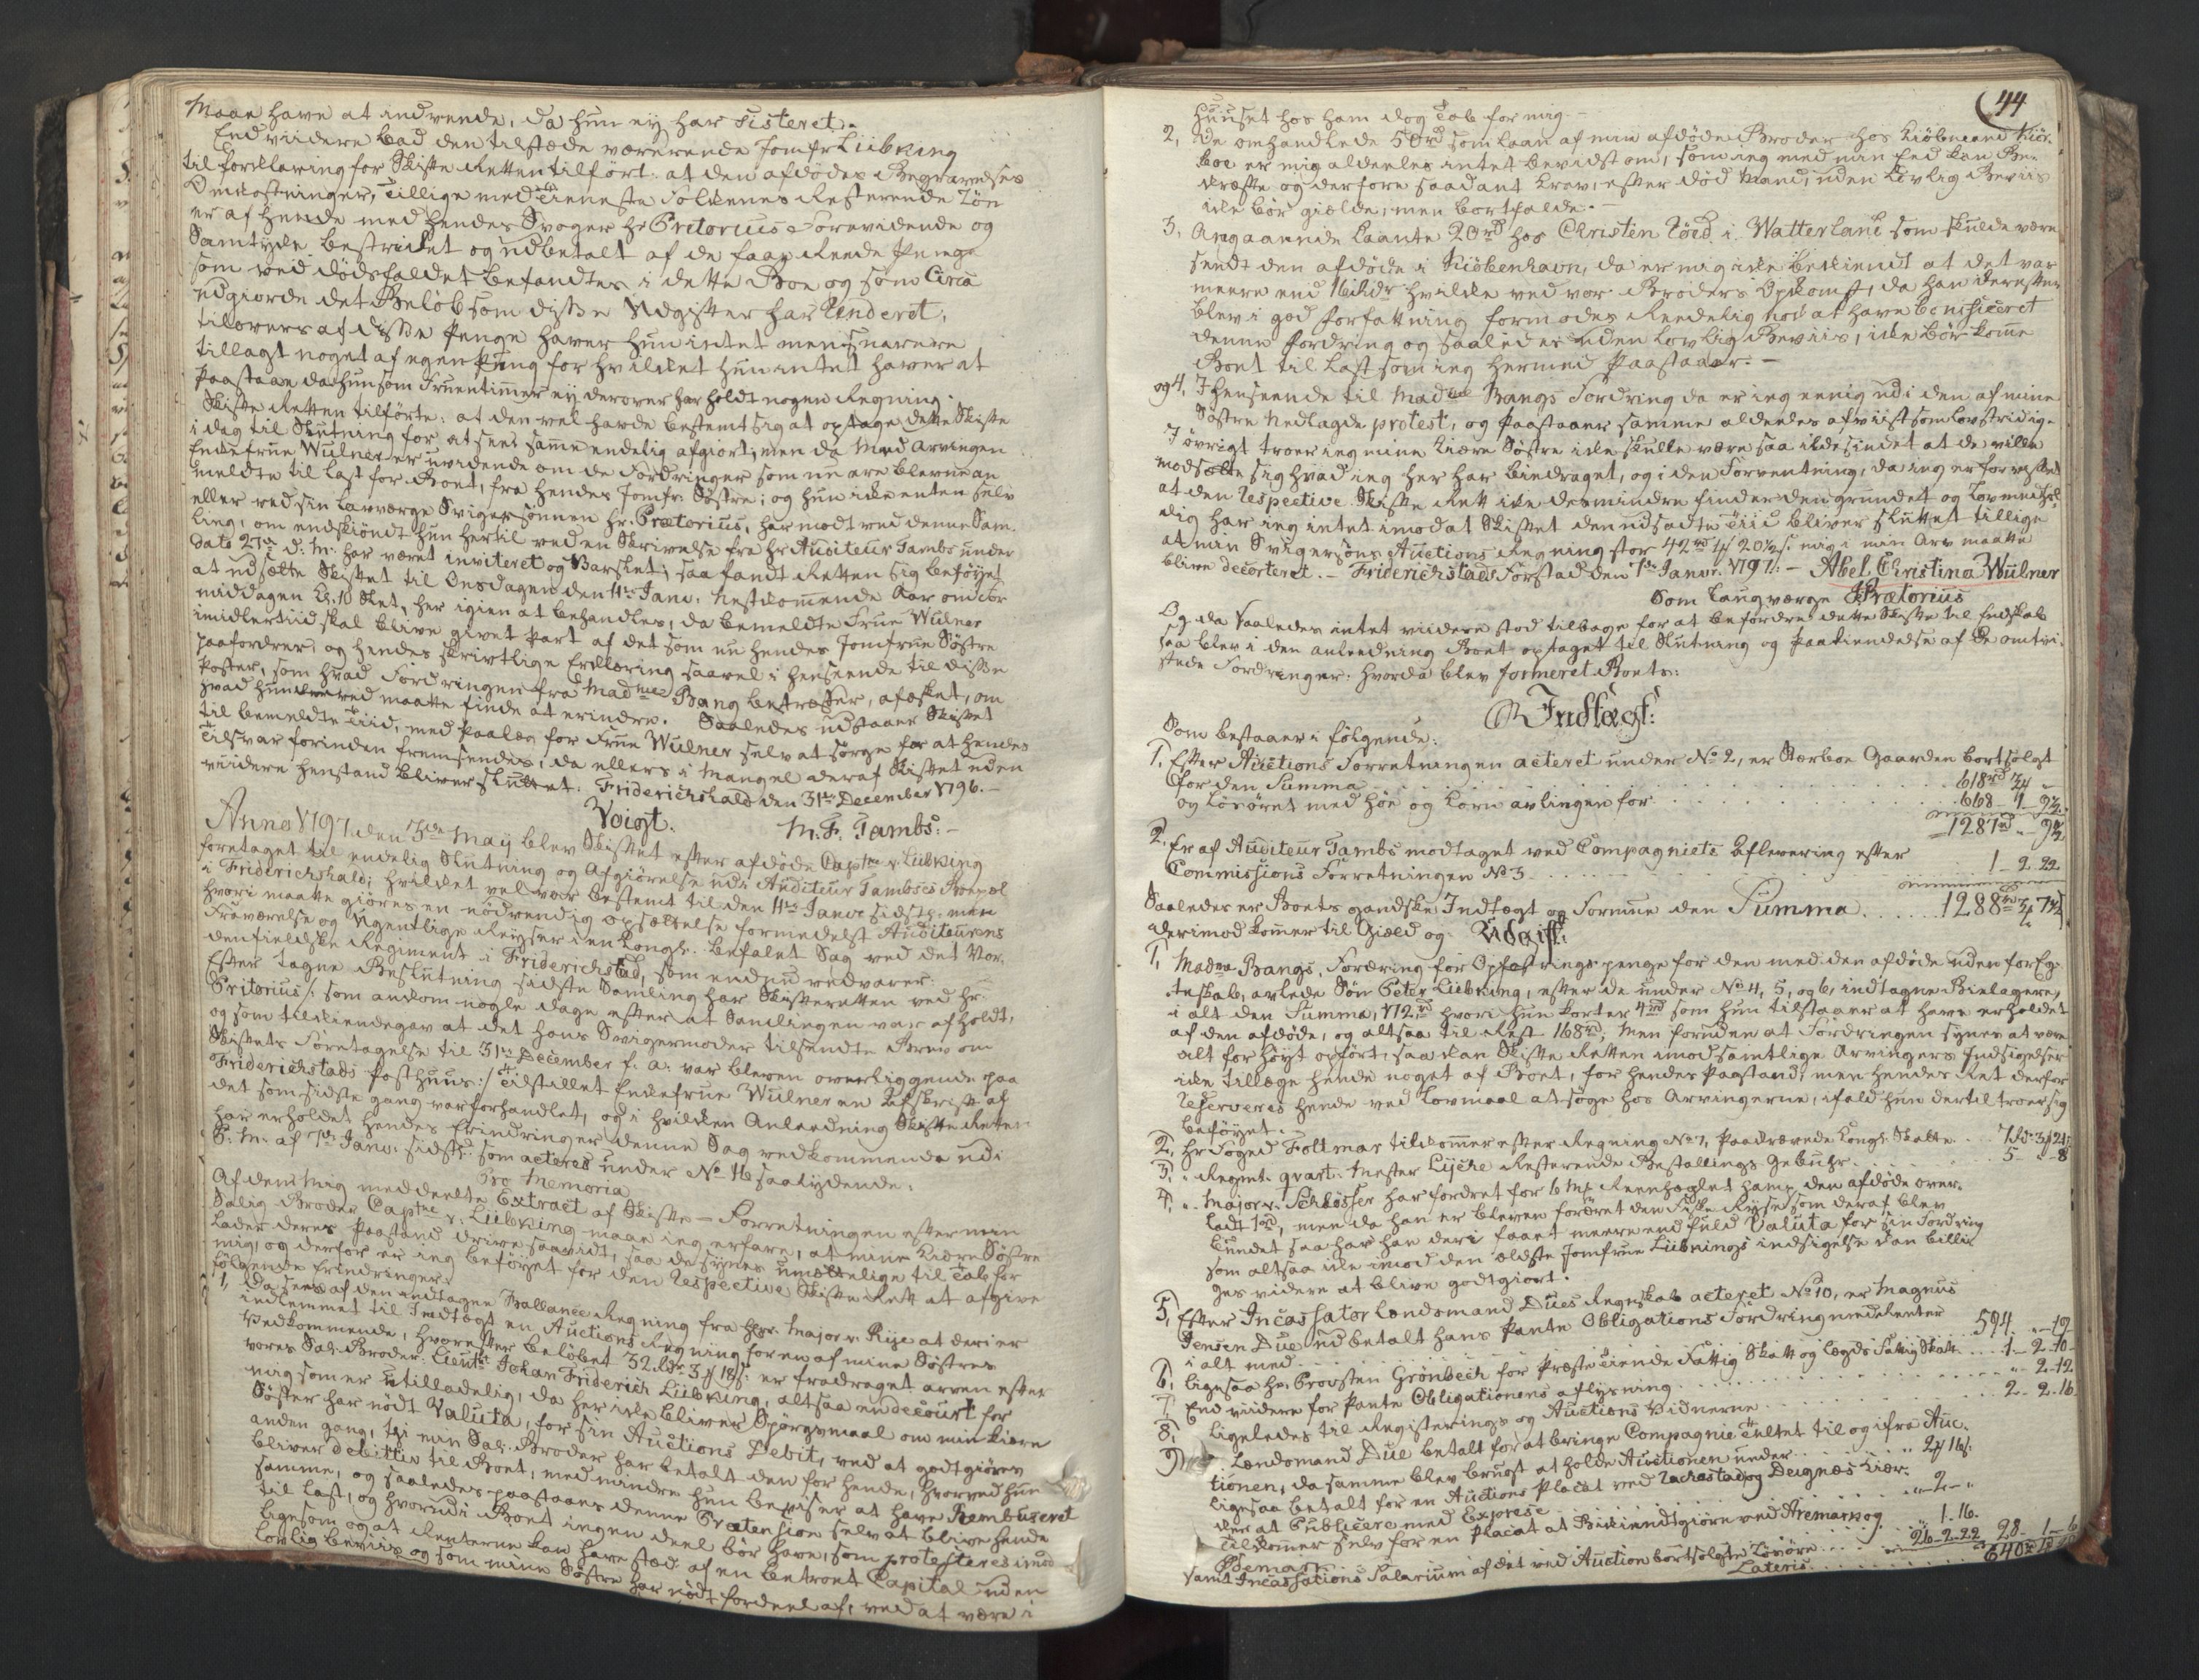 Maae have at indvende, da hun ey har Sisteret.
End viidere bad den tilstæde værerende Jomfr Lübking
til forklaring for Skifte Retten tilført: at den afdødes Begravelses
Omkostninger, tillige med tieneste Folkenes Resterende Løn
er af hende med hendes Svoger Hr Pritorius Forevidende og
Samtykke bestridet og udbetalt af de faae Reede Penge
som ved dødsfaldet befandtes i dette Boe og som Circa
udgiorde det Beløb som disse Udgifter har Underet,
tilovers af disse Penge haver hun intet men snarere
tillagt noget af egen Pung for hvilket hun intet haver at
Paastaae da hun som Fruentimmer ey derover har holdt nogen Regning.
Skifte Retten tilførte: at den vel havde bestemt sig at optage dette Skifte
i dag til Slutning for at see samme endelig afgiort, men da Med Arvingen
Enkefrue Wulner er uvidende om de Fordringer som nu ere blevne an
meldte til last for Boet, fra hendes Jomfr. Søstre; og hun ikke enten selv
eller ved sin Lavværge Svigersønnen Hr. Prætorius, har mødt ved denne Sam-
ling, om endskiøndt hun hertil ved en Skrivelse fra Hr Auditeur Tambs under
dato 27de d: M: har været inviteret og Varslet; saa fandt Retten sig beføyet
at udsætte Skiftet til Onsdagen den 11te Janv. nestkommende Aar om for
middagen Kl. 10 Slet, her igien at behandles, da bemeldte Frue Wulner
imidlertiid skal blive givet part af det som nu hendes Jomfrue Søstre
paafordrer, og hendes skrivtlige Erklæring saavel i henseende til disse
Poster, som hvad Fordringen fra Madme Bang betræffer, afæsket, om
hvad hun derved maatte finde at erindre. Saaledes udstaaer Skiftet
til bemeldte Tiid, med Paalæg for Frue Wulner selv at sørge for at hendes
Tilsvar forinden fremsendes, da ellers i Mangel deraf Skiftet uden
viidere henstand bliver sluttet. Friderichshald den 31te December 1796.
Voigt. M. F. Tambs.
Anno 1797 den 3die May blev Skiftet efter afdøde Captne v. Lübking
foretaget til endelig Slutning og Afgiørelse udi Auditeur Tambses Boepæl
i Friderichshald; hvilket vel var bestemt til den 11te Janv. sidstl. men
hvori maatte giøres en nødvendig opsættelse formedelst Auditeurens
Fraværelse og Ugentlige Reyser i en Kongl. befalet Sag ved det Nor-
denfieldske Regiment i Friderichstad, som endnu vedvarer.
Efter tagne Beslutning sidste Samling har Skifteretten ved Hr.
Pritorius /: som ankom nogle dage efter at Samlingen var afholdt,
og som tilkiendegav at det hans Svigermoder tilsendte Brev om
Skiftets Foretagelse til 31te December f. a. var bleven overliggende paa
Friderichstads Posthuus :/ tilstillet Enkefrue Wulner en Afskrift af
det som sidste gang var forhandlet, og i hvilken Anledning Skifte Retten
har erholdet hendes Erindringer denne Sag vedkommende udi
P: M: af 7de Janv: sidstl: som acteres under No 16 saalydende:
Pro Memoria
Af den mig meddeelte Extract af Skifte-Forretningen efter min
Salig Broder Captne v. Lübking maae ieg erfare, at mine Kiære Søstre
lader deres Paastand drive saavidt, saa de synes umættelige til Tab for
mig, og derfor er ieg beføyet for den Respective Skifte Rett at afgive
følgende Erindringer.
1, Da sees af den indtagne Ballance Regning fra Hr. Major v. Rye at deri er
indlemmet til Indtægt en Auctions Regning for en af mine Søstres
Vedkommende, hvorefter beløbet 32 Rdr 3 # 18 s: er fradraget arven efter
vores Sal: Broder: Lieutt Johan Friderich Lübking, altsaa en decourt for
mig som er utilladelig, da her ikke bliver Spørgsmaal om min kiære
Søster har nødt Valuta, for sin Auctions Debit, ved at godtgiøres
anden gang, thi min Sal. Broder har betalt den for hende, hvorved hun
bliver debitrix til Boet, med mindre hun beviser at have Rembuseret
samme, og saaledes paastaaes denne Prætension selv at blive hende
til last, og hvorudi Boet ingen deel bør have, som protesteres imod
ligesom og at Renterne kan have sted af en betroet Capital uden
lovlig beviis og som mine Søstre har nødt fordeel af, ved at være i
44
Huuset hos ham dog Tab for mig.
2, De omhandlede 50rd som laan af min afdøde Broder hos Kiøbmand Kiør-
boe er mig aldeeles intet bevidst om, som ieg med min Eed kan Be-
kræfte og derfore saadant krav, efter død Mand, uden Lovlig Beviis
ikke bør gielde, men bortfalde.
3, Angaaende Laante 20rd hos Christen Körd i Watterland som skulde være
sendt den afdøde i Kiøbenhavn, da er mig ikke bekiendt at det var
meere end 16 Rdr hvilke ved vor Broders Opkomst, da han derefter
blev i god forfatning formodes Reedelig hos at have bonificeret
denne fordring og saaledes uden Lovlig Beviis, ikke bør komme
Boet til Last som ieg hermed Paastaaer.
og 4, I henseende til Madme Bangs Fordring da er ieg eenig udi den af mine
Søstre Nedlagde protest, og paastaaer samme aldeeles afviist som lovstridig.
I øvrigt troer ieg mine kiære Søstre ikke skulle være saa ildesindet at de ville
modsætte sig hvad ieg her har bindraget, og i den Forventning, da ieg er forvisset
at den Respective Skifte Rett ikke desmindre finder den grundet og Lovmedhol-
dig har ieg intet imod at Skiftet den udsadte Tiid bliver sluttet tillige
at min Svigersøns Auctions Regning stor 42rd 1# 20½ s: mig i min Arv maatte
blive decorteret. - Friderichstads Forstad den 7de Janvr. 1797. - Abel Christina Wülner
Som Laugværge Prætorius
Og da saaledes intet viidere stod tilbage for at befordre dette Skifte til Endskab
saa blev i den anledning Boet optaget til Slutning og Paakiendelse af de omtvi-
stede Fordringer: hvorda blev formeret Boets:
Indtægt:
Som bestaaer i følgende:
1, Efter Auctions Forretningen acteret under No 2, er Stærboe Gaarden bortsolgt
for den Summa . . . 618rd 3# "
og Løsøret med høe og Korn avlingen for . . . 668 - 1 - 9½
1287rd " 9½
2. Er af Auditeur Tambs modtaget ved Compagniets Aflevering efter
Commissions Forretningen No 3 . . . 1 - 2 - 22
Saaledes er Boets gandske Indtægt og Formue den Summa . . . 1288rd 3# 7½
derimod kommer til Gield og Udgift:
1, Madme Bangs Fordring for Opfostrings penge for den med den afdøde uden for Eg-
teskab, avlede Søn Peter Lübking, efter de under No 4, 5, og 6, indtagne Bielagere,
i alt den Summa, 172rd hvori hun korter 4rd som hun tilstaaer at have erholdet
af den afdøde, og altsaa til Rest 168rd; Men foruden at Fordringen synes at være
alt for høyt opført, saa kan Skifte Retten imod samtlige Arvingers Indsigelser
ikke tillægge hende noget af Boet, for hendes Paastand; men hendes Ret derfor
Reserveres hende ved Lovmaal at søge hos Arvingerne, ifald hun dertil troer sig
beføyet.
2, Hr Foged Foltmar tilkommer efter Regning No 7, Paakrævende Kongl. Skatte . . 7 Rd: 3# 21
3, " Regmt. qvart. Mester Lyche Resterende Bestallings Gebuhr . . . 5 - " - 8
4, " Major v. Schlösser har fordret for 6 Mk Reenheglet hamp den afdøde over-
ladt 1rd, men da han er bleven foræret den Fiske Ryse som deraf blev
bundet saa har han deri faaet meere end fuld Valuta for sin Fordring
som altsaa ikke imod den ældste Jomfrue Lübknings indsigelse kan billi-
ges videre at blive godtgiort.
5, Efter Incassator Lændsmand Dues Regnskab acteret No 10, er Magnus
Jensen Due udbetalt hans Pante Obligations Fordring med Renter
i alt med . . . 594 " - 12
6, Ligesaa Hr. Provsten Grönbech for Præste Tiende Fattig Skatt og Lægds Fattig Skatt . . . 1 - 2 - 10
7, End viidere for Pante Obligationens aflysning . . . " - 2 - 12
8, Ligeledes til Registerings og Auctions Vidnerne . . . 2 - 2 - 16
9) Lændsmand Due betalt for at bringe Compagnie Teltet til og ifra Auc-
tionen, da samme blev brugt at holde Auctionen under . . . " 2# 16 s:
Ligesaa betalt for en Auctions Placat ved Rachestad og Deignæs kiær-
ker at Publicere med Exprese . . . " - 2 - "
Tilkommer selv for en Placat at Bekiendtgiøre ved Aremark og
Ødemark . . . " 1. 16.
Samt Incassations Salarium af det ved Auction bortsolgte Løsøre . . . 26 - 2 - 22 28 - 1 - 6
Lateris. . . . 640rd